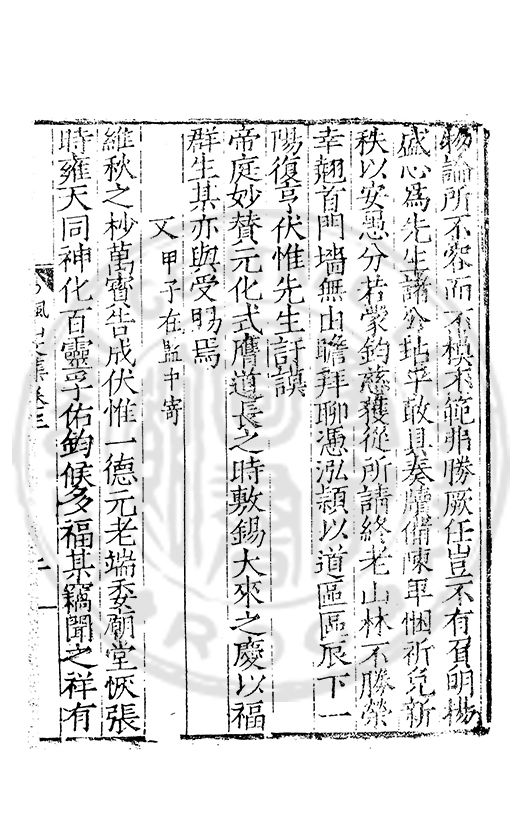 物論所不容而不模不範非勝厥任豈不有負明揚
盛心爲先生諸公玷乎敢具奏牘備陳卑悃祈免新
秩以安愚分若蒙鈞慈獲從所請終老山林不勝榮
幸翹首門墻無由瞻拜聊憑泓頴以道區區辰下一
陽復亨伏惟先生訏謨
帝庭妙賛元化式膺道長之時敷錫大來之慶以福
群生某亦與受賜焉
又 甲子在監中寄
維秋之杪萬寳告成伏惟一德元老端委廟堂恢張
時雍天同神化百靈孚佑鈞候多福某竊聞之祥有
楓山文集卷三